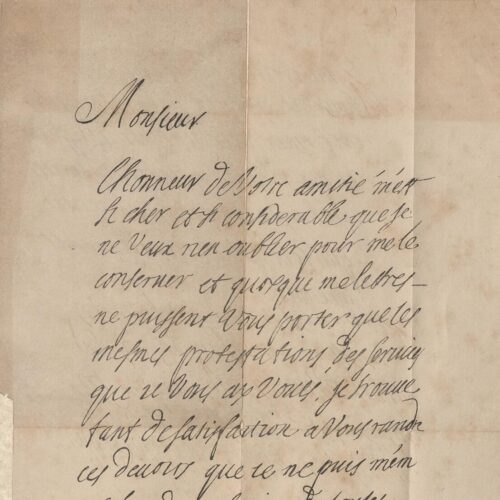 Monsieur
lhonneur de Votre amitié m'est
si cher et si considerable que je
ne Veux rien oublier pour me le
conserver et quoy que me lettres
ne puissent Vous porter que les
mesmes protestations des services
que ie Vous ay Voués, je trouve
tant de satisfaction a Vous randre
ces devoirs que ie ne puis m'em